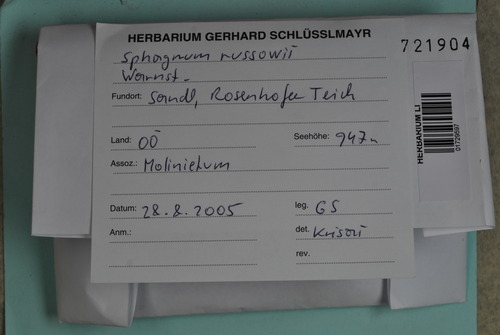 HERBARIUM GERHARD SCHLÜSSLMAYR
721904
Sphagnum russowii
Warnst.
Fundort: Sandl, Rosenhofer Teich
Land: OÖ Seehöhe: 947m
Assoz.: Molinietum
Datum: 28.8.2005 leg. GS
Anm.: det. Krisai
rev.
HERBARIUM LI
01729597